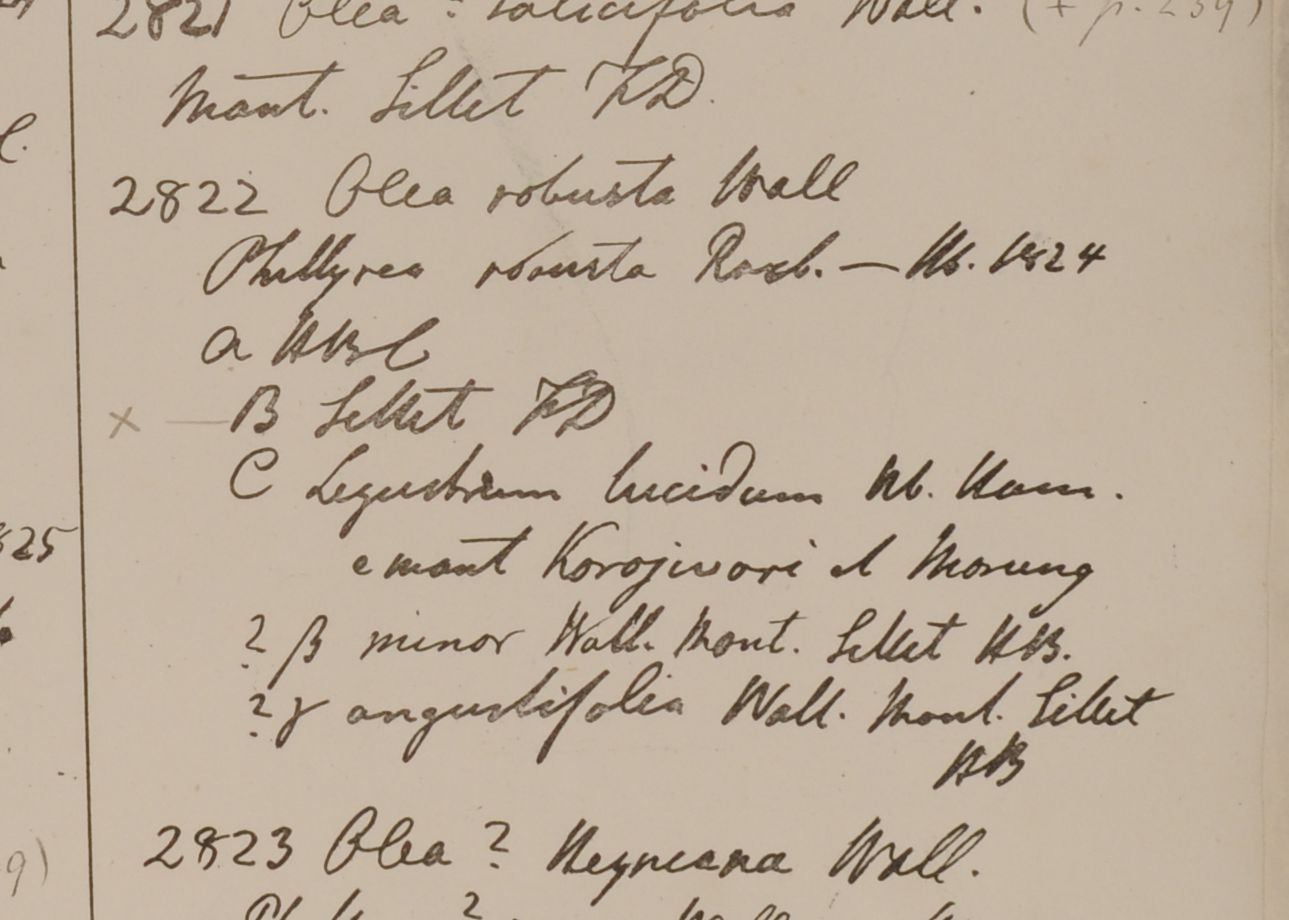 2821 Olea ? salicifolia Wall. (+ p. 239)
Mont. Sillet FD.
2822 Olea robusta Wall
Phillyrea robusta Roxb. — Hb. 1824
a HBC
× — B Sillet FD
C Ligustrum lucidum Hb. Ham.
e mont Korojwori et Morung
? β minor Wall. Mont. Sillet HB.
? γ angustifolia Wall. Mont. Sillet
HB
825
2823 Olea ? Heyneana Wall.
9)